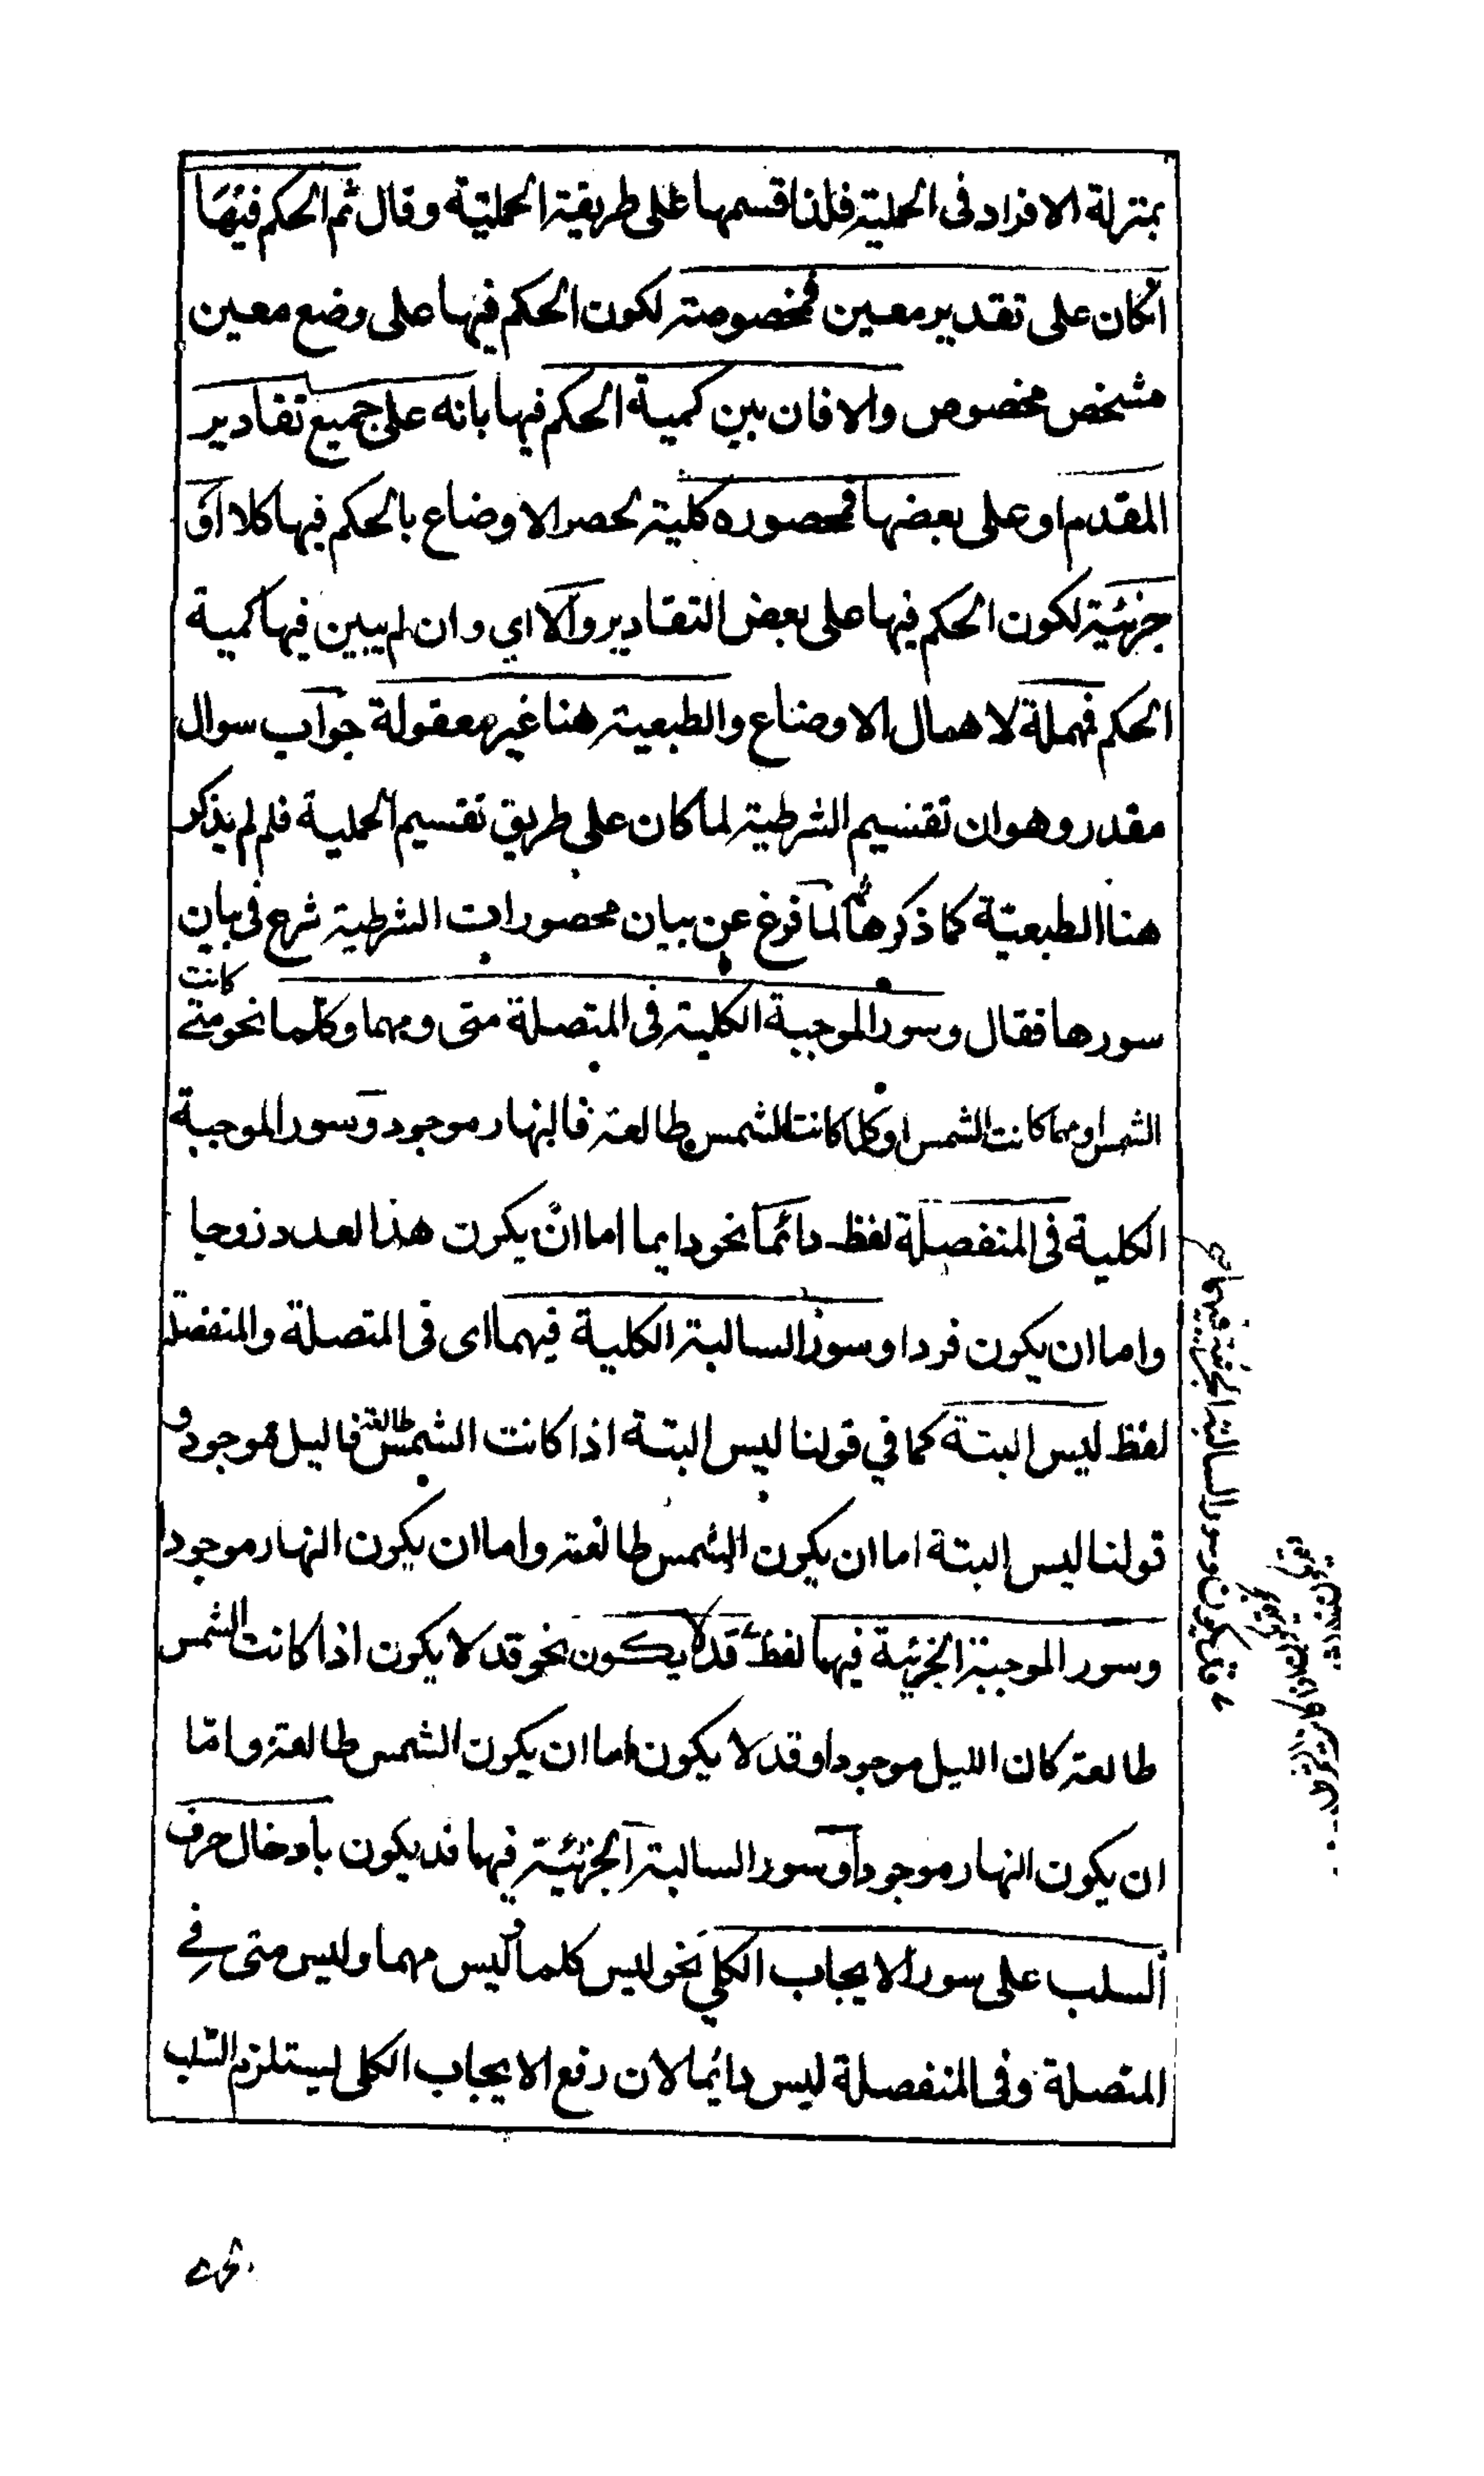 بمنزلة الافراد فى الحملية فلذا قسمها على طريقة الحملية وقال ثم الحكم فيها
انكان على تقدير معين فمخصوصة لكون الحكم فيها على وضع معين
مشخص مخصوص والا فان بين كمية الحكم فيها بانه على جميع تقادير
المقدم او على بعضها فمحصوره كلية لحصر الاوضاع بالحكم فيها كلا او
جزئية لكون الحكم فيها على بعض التقادير والا اي وان لم يبين فيها كمية
الحكم فمهملة لاهمال الاوضاع والطبعية هنا غير معقولة جواب سوال
مقدر وهو ان تقسيم الشرطية لما كان على طريق تقسيم الحملية فلم لم يذكر
هنا الطبعية كما ذكرها ثم لما فرغ عن بيان محصورات الشرطية شرع فى بيان
سورها فقال وسور الموجبة الكلية فى المتصلة متى ومهما وكلما نحو متى كانت
الشمس او مهما كانت الشمس او كلما كانت الشمس طالعة فالنهار موجود وسور الموجبة
الكلية فى المنفصلة لفظ دائما نحو دايما اما ان يكون هذا لعدد زوجا
واما ان يكون فردا وسور السالبة الكلية فيهما اى فى المتصلة والمنفصلة
لفظ ليس البتة كما في قولنا ليس البتة اذا كانت الشمس طالعة فاليل موجود و
قولنا ليس البتة اما ان يكون الشمس طالعة واما ان يكون النهار موجودا
وسور الموجبة الجزئية فيهما لفظ قد لا يكون نحو قد لا يكون اذا كانت الشمس
طالعة كان الليل موجودا وقد لا يكون اما ان يكون الشمس طالعة واما
ان يكون النهار موجودا وسور السالبة الجزئية فيهما قد يكون بادخال حرف
السلب على سور الايجاب الكلي نحو ليس كلما وليس مهما وليس متى في
المتصلة وفى المنفصلة ليس دايما لان رفع الايجاب الكلى ليستلزم السلب
قد يكون وسور السالبة الجزئية فيهما